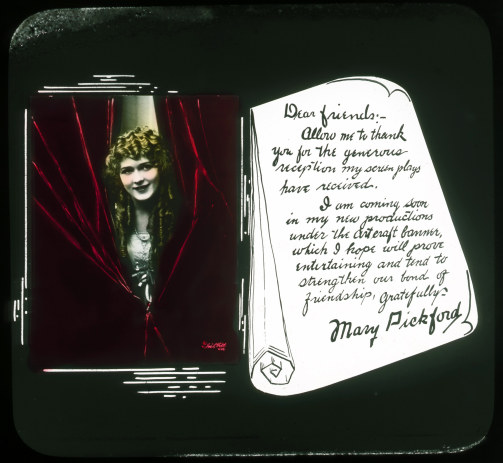 Dear friends:-
Allow me to thank
you for the generous
reception my screen plays
have received.
I am coming soon
in my new productions
under the Artcraft banner,
which I hope will prove
entertaining and tend to
strengthen our bond of
friendship, Gratefully-
Mary Pickford